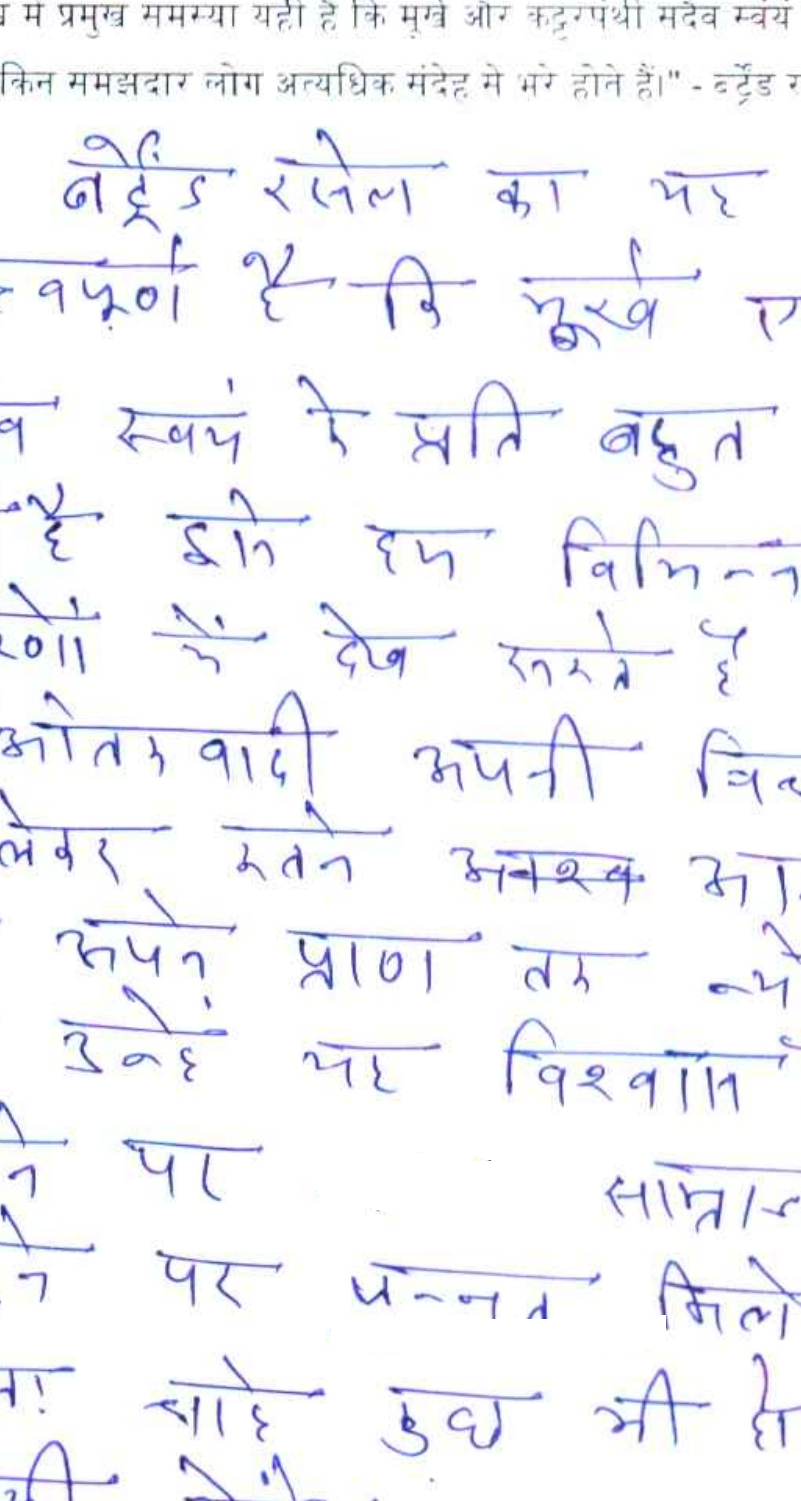 में प्रमुख समस्या यही है कि मूर्ख और कट्टरपंथी सदैव स्वयं
किन समझदार लोग अत्यधिक संदेह से भरे होते हैं।" - बर्ट्रेंड र
बर्ट्रेंड रसेल का यह
वपूर्ण है कि मूर्ख ए
व स्वयं के प्रति बहुत
है इसे हम विभिन्न
रणों में देख सकते है
आतंकवादी अपनी
लेकर इतने आ
अपने प्राण तक न्यो
उन्हें यह विश्वास
ने पर साम्राज्
ने पर जन्नत मिले
चाहे कुछ भी हो